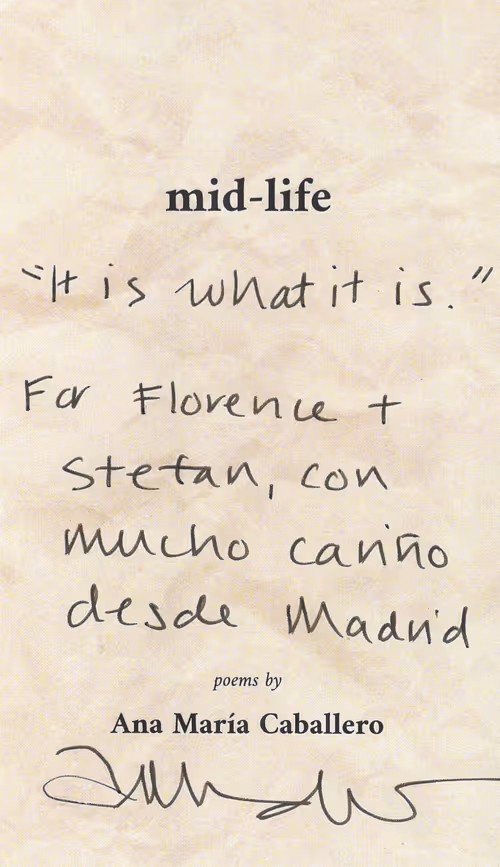 mid-life
"It is what it is."
For Florence +
Stefan, con
mucho cariño
desde Madrid
poems by
Ana María Caballero